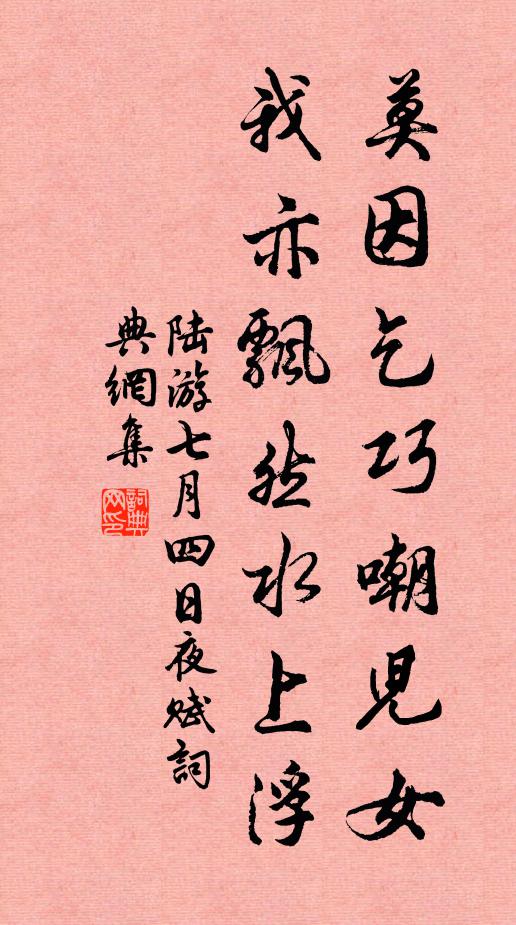 莫因乞巧嘲児女
我亦飄然水上浮
陆游七月四日夜赋詞
典網集
詞典网印